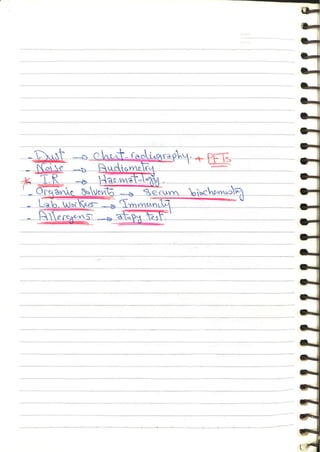 - Dust → Chest radiography + PFTs
- Noise → Audiometry
* IR → Haematology
- Organic solvents → serum biochemistry
- Lab. worker → Immunity
- Allergens → atopy test